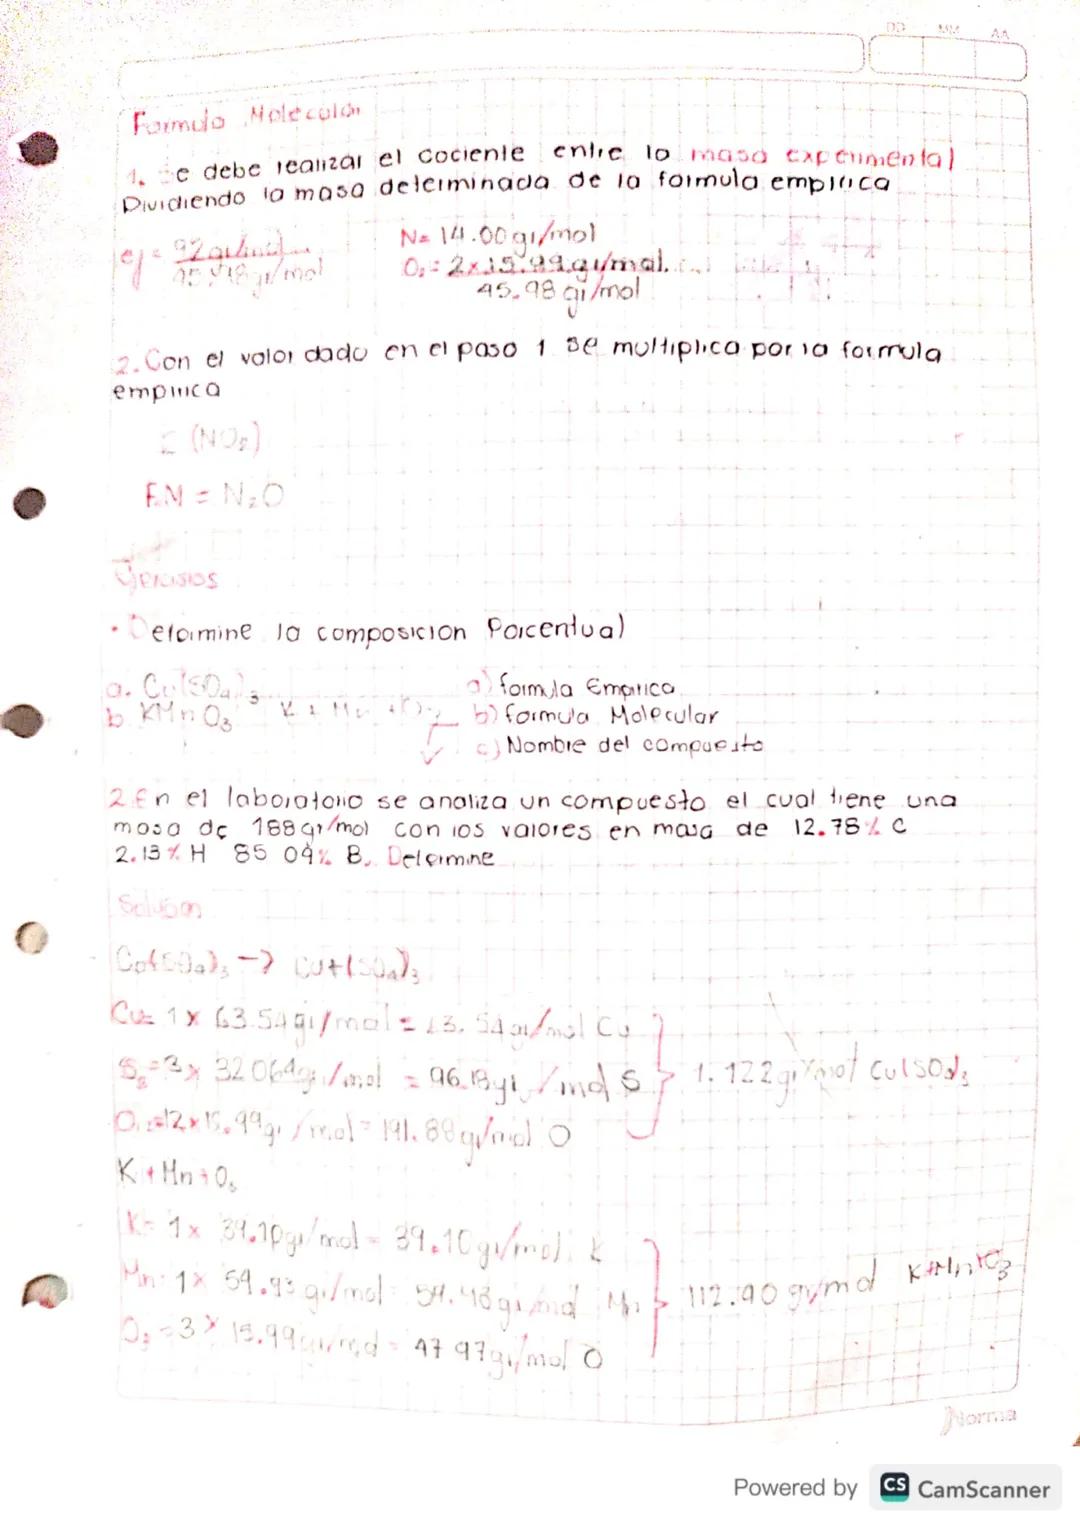 DD MM AA
Formula Molecular
1. Se debe realizar el cociente entre la masa experimental
Dividiendo la masa determinada de la formula empirica
ej = 92 gr/mol
N= 14.00 gr/mol
O₂= 2x15.99 gr/mol.
45.98 gr/mol
2. Con el valor dado en el paso 1 se multiplica por la formula
empirica
(NO₂)
F.M = N₂O
Ejercisios
• Determine la composicion Porcentual
a. Cu(SO₄)₃
b. KMnO₃
a) formula Empirica
b) formula Molecular
c) Nombre del compuesto
2. En el laboratorio se analiza un compuesto el cual tiene una
masa de 188 gr/mol con los valores en masa de 12.78% C
2.13% H 85 04% B. Determine
Solucion
→ Cu+(SO₄)₃
Cu= 1 x 63.54 gr/mol = 63.54 gr/mol Cu
= 3 x 32 064 gr/mol = 96.18 gr/mol S
1.122 gr/mol Cu(SO₄)₃
=12 x 15.99 gr/mol = 191.88 gr/mol O
K + Mn + O₃
K= 1 x 39.10 gr/mol = 39.10 gr/mol K
Mn= 1 x 54.93 gr/mol = gr/mol Mn
112.90 gr/mol
O₃ = 3 x 15.99 gr/mol = 47 97 gr/mol O
Norma
Powered by CS CamScanner